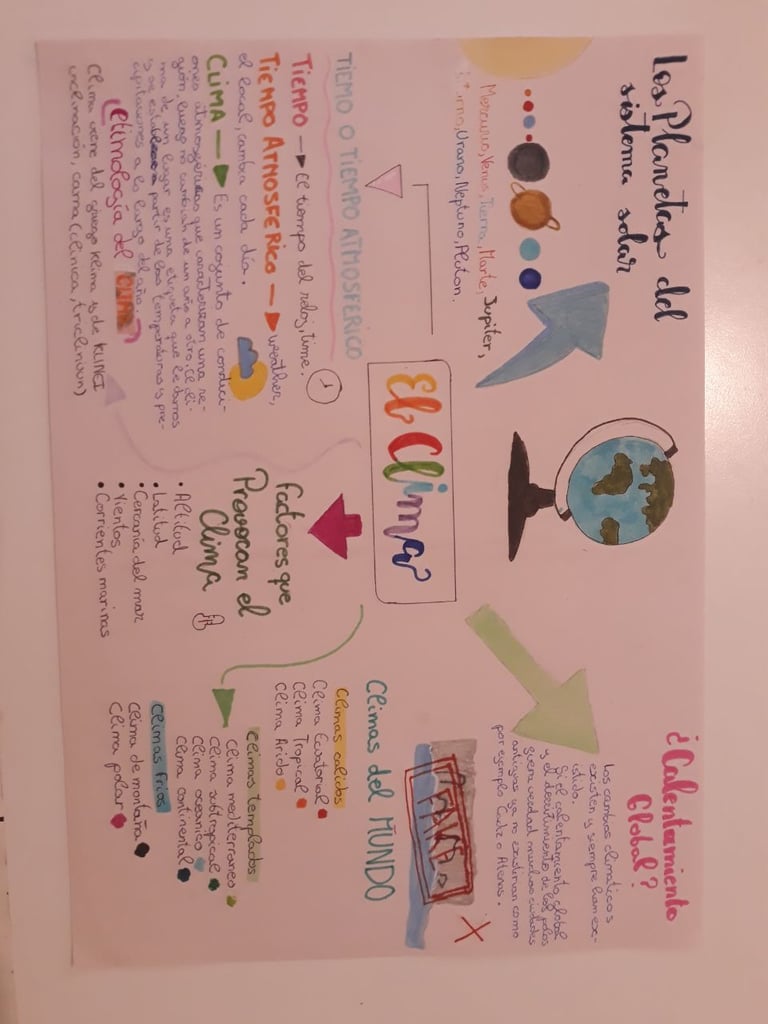 Los Planetas del
sistema solar
Mercurio, Venus, Tierra, Marte, Jupiter,
Urano, Neptuno, Pluton.
¿Calentamiento
Global?
Los cambios climaticos
existen y siempre han ex-
istido.
Si el calentamiento global
y el derretimiento de los polos
fuera verdad muchas ciudades
antiguas ya no existirian como
por ejemplo Cadiz o Atenas.
El Clima
TIEMO O TIEMPO ATMOSFERICO
TIEMPO → El tiempo del reloj, time.
1
TIEMPO ATMOSFERICO → weather,
el local, cambia cada día.
CLIMA → Es un conjunto de condici-
ones atmosfericas que caracterizan una re-
gión, luego no cambian de un año a otro. El cli-
ma de un lugar es una etiqueta que le damos
y se establece a partir de las temperaturas y pre-
cipitaciones a lo largo del año.
etimología del CLIMA
Clima viene del griego Klima y de KLINEI
inclinación, cama (clinica, triclinium)
Factores que
Provocan el
Clima
• Altitud
• Latitud
• Cercanía del mar
• Vientos
• Corrientes marinas
Climas del MUNDO
Climas calidos
Clima Ecuatorial
Clima Tropical
Clima Arido
Climas templados
Clima mediterraneo
Clima subtropical
Clima oceanico
Clima continental
Climas frios
Clima de montaña
Clima polar